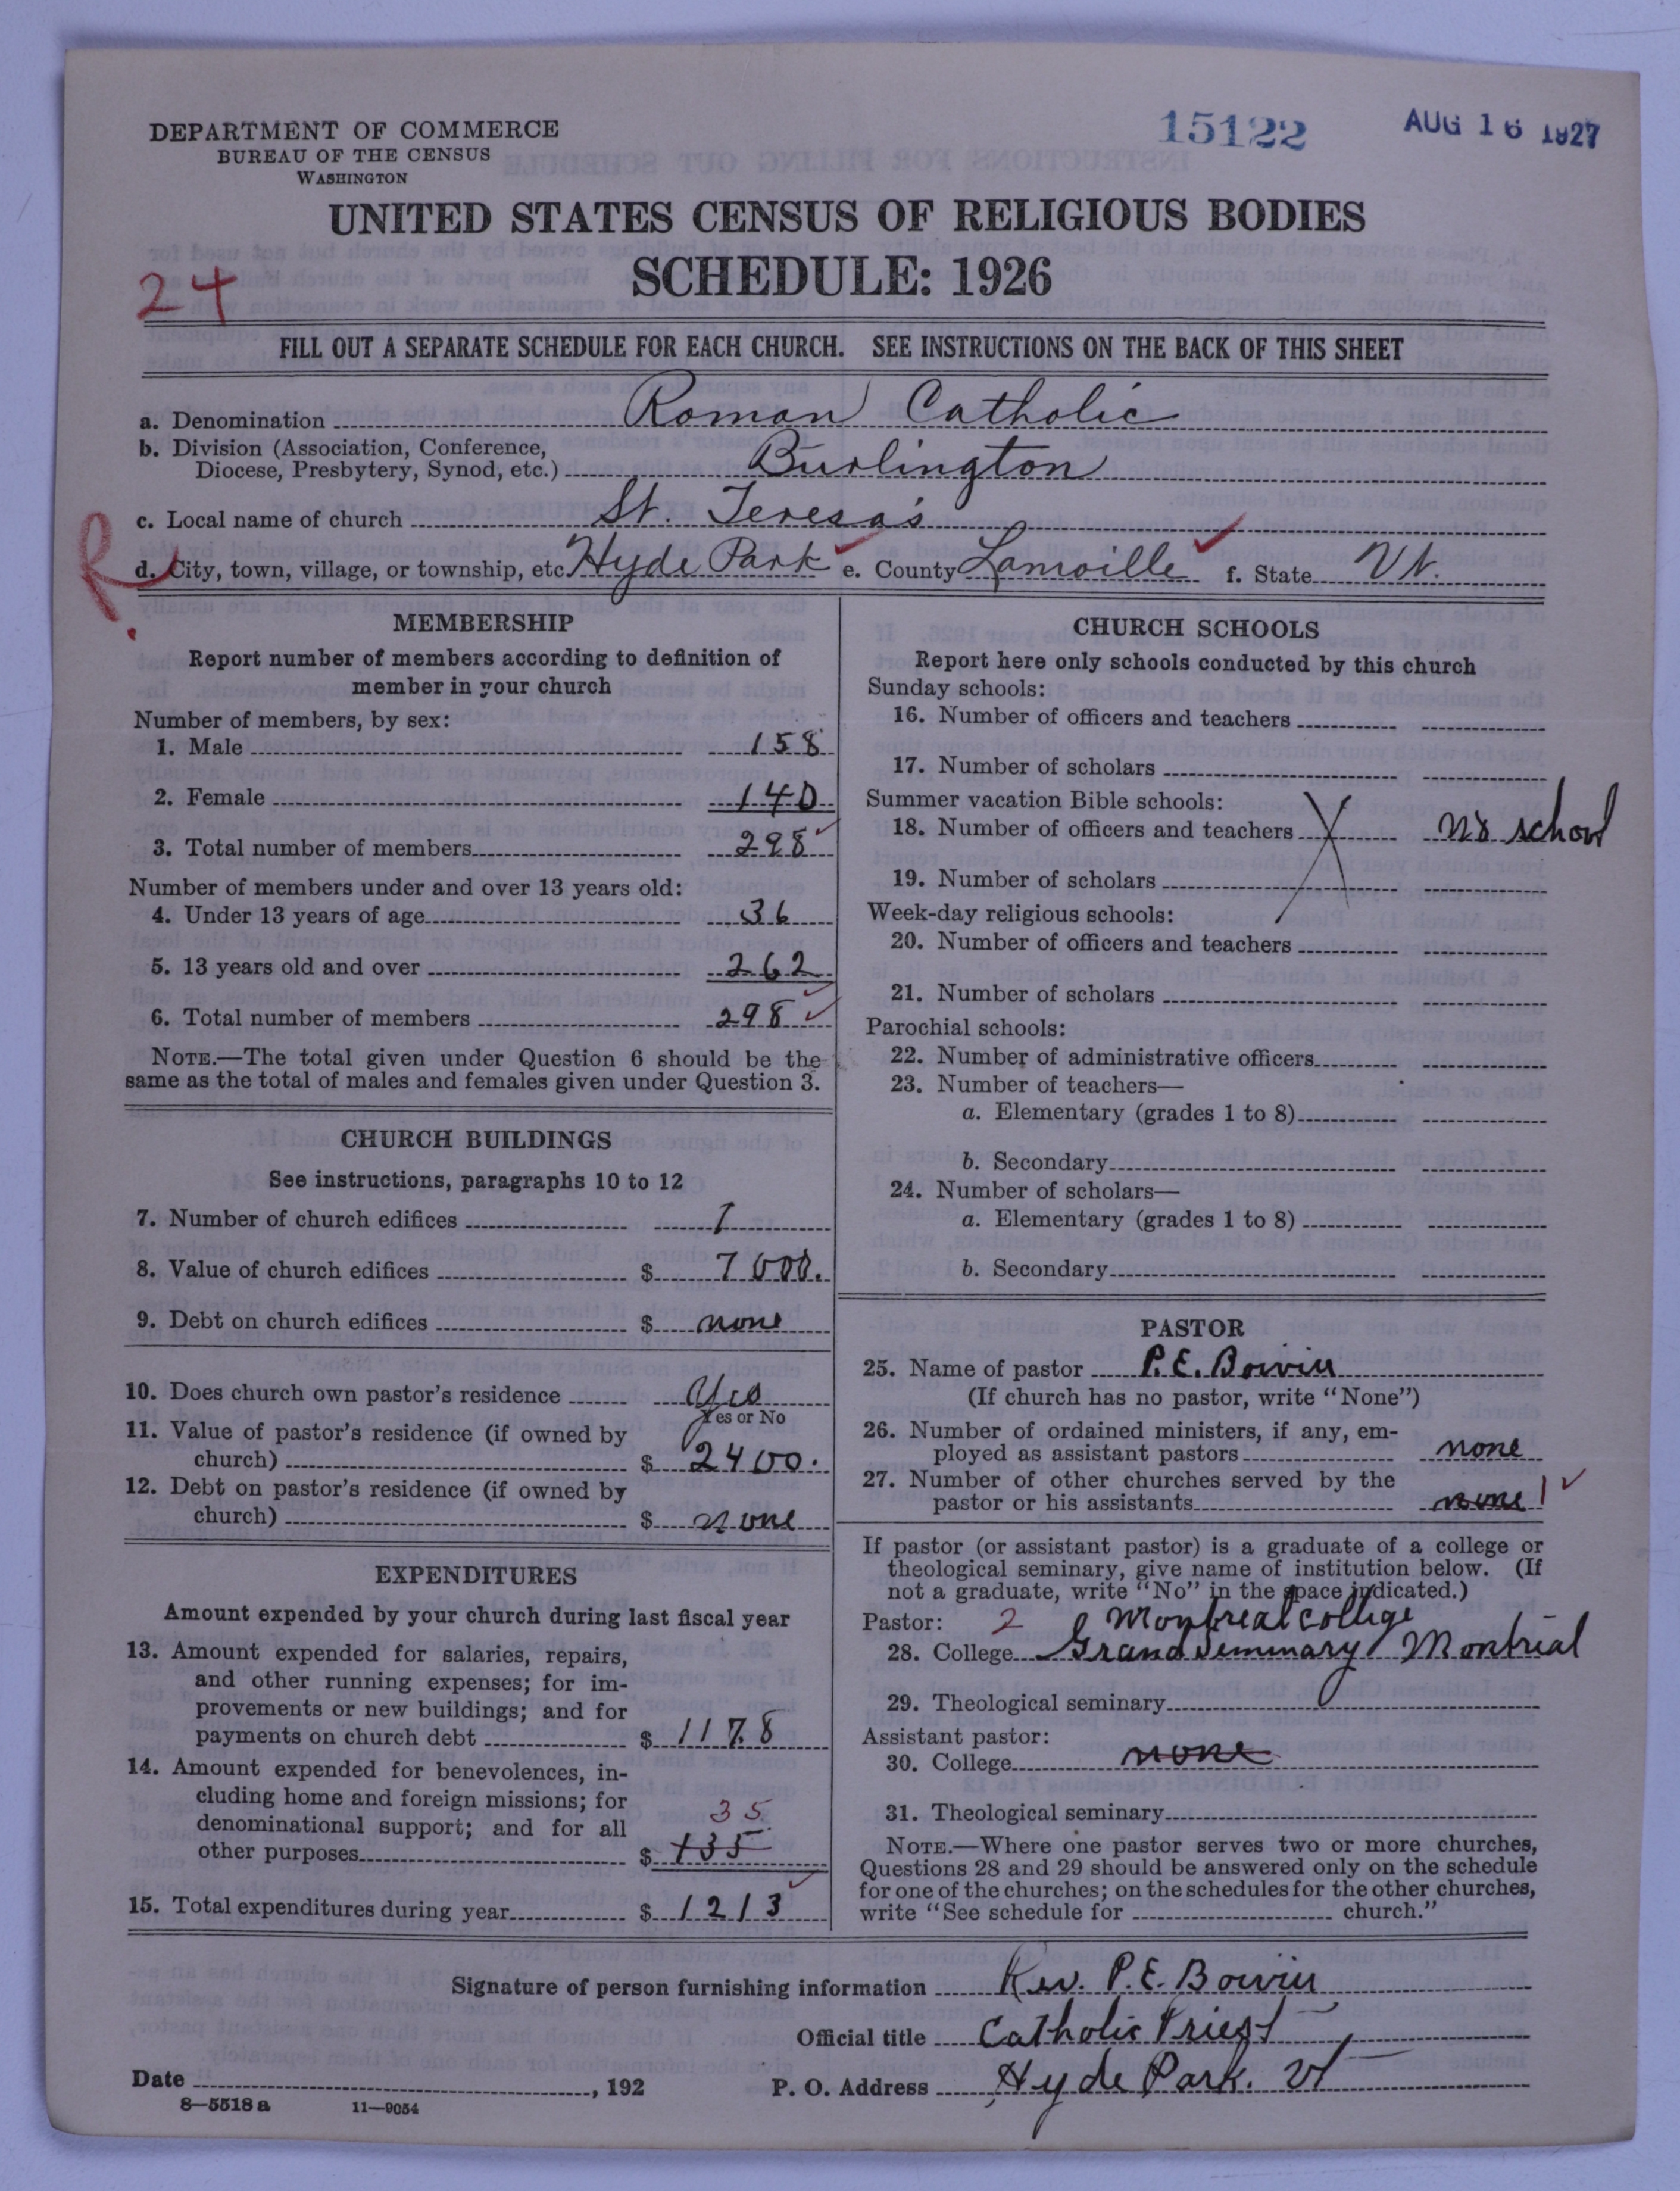 DEPARTMENT OF COMMERCE
BUREAU OF THE CENSUS
WASHINGTON
15122
AUG 16 1927
UNITED STATES CENSUS OF RELIGIOUS BODIES
SCHEDULE: 1926
24
FILL OUT A SEPARATE SCHEDULE FOR EACH CHURCH. SEE INSTRUCTIONS ON THE BACK OF THIS SHEET
a. Denomination Roman Catholic
b. Division (Association, Conference,
Diocese, Presbytery, Synod, etc.) Burlington
c. Local name of church St. Teresa's
R.
d. City, town, village, or township, etc. Hyde Park e. County Lamoille f. State Vt.
MEMBERSHIP
Report number of members according to definition of
member in your church
Number of members, by sex:
1. Male 158
2. Female 140
3. Total number of members 298
Number of members under and over 13 years old:
4. Under 13 years of age 36
5. 13 years old and over 262
6. Total number of members 298
NOTE.—The total given under Question 6 should be the
same as the total of males and females given under Question 3.
CHURCH BUILDINGS
See instructions, paragraphs 10 to 12
7. Number of church edifices 1
8. Value of church edifices $ 7000.
9. Debt on church edifices $ none
10. Does church own pastor's residence Yes
Yes or No
11. Value of pastor's residence (if owned by
church) $ 2400.
12. Debt on pastor's residence (if owned by
church) $ none
EXPENDITURES
Amount expended by your church during last fiscal year
13. Amount expended for salaries, repairs,
and other running expenses; for im-
provements or new buildings; and for
payments on church debt $ 1178
14. Amount expended for benevolences, in-
cluding home and foreign missions; for
denominational support; and for all
35
other purposes $ 135
15. Total expenditures during year $ 1213
CHURCH SCHOOLS
Report here only schools conducted by this church
Sunday schools:
16. Number of officers and teachers
17. Number of scholars
Summer vacation Bible schools:
18. Number of officers and teachers no school
19. Number of scholars
Week-day religious schools:
20. Number of officers and teachers
21. Number of scholars
Parochial schools:
22. Number of administrative officers
23. Number of teachers—
a. Elementary (grades 1 to 8)
b. Secondary
24. Number of scholars—
a. Elementary (grades 1 to 8)
b. Secondary
PASTOR
25. Name of pastor P.E. Boivin
(If church has no pastor, write "None")
26. Number of ordained ministers, if any, em-
ployed as assistant pastors none
27. Number of other churches served by the
pastor or his assistants none 1
If pastor (or assistant pastor) is a graduate of a college or
theological seminary, give name of institution below. (If
not a graduate, write "No" in the space indicated.)
Pastor: 2 Montreal college
28. College Grand Seminary Montrial
29. Theological seminary
Assistant pastor:
30. College none
31. Theological seminary
NOTE.—Where one pastor serves two or more churches,
Questions 28 and 29 should be answered only on the schedule
for one of the churches; on the schedules for the other churches,
write "See schedule for church."
Signature of person furnishing information Rev. P.E. Boivin
Official title Catholic Priest
Date , 192 P. O. Address Hyde Park. Vt
8—5518 a 11—9054